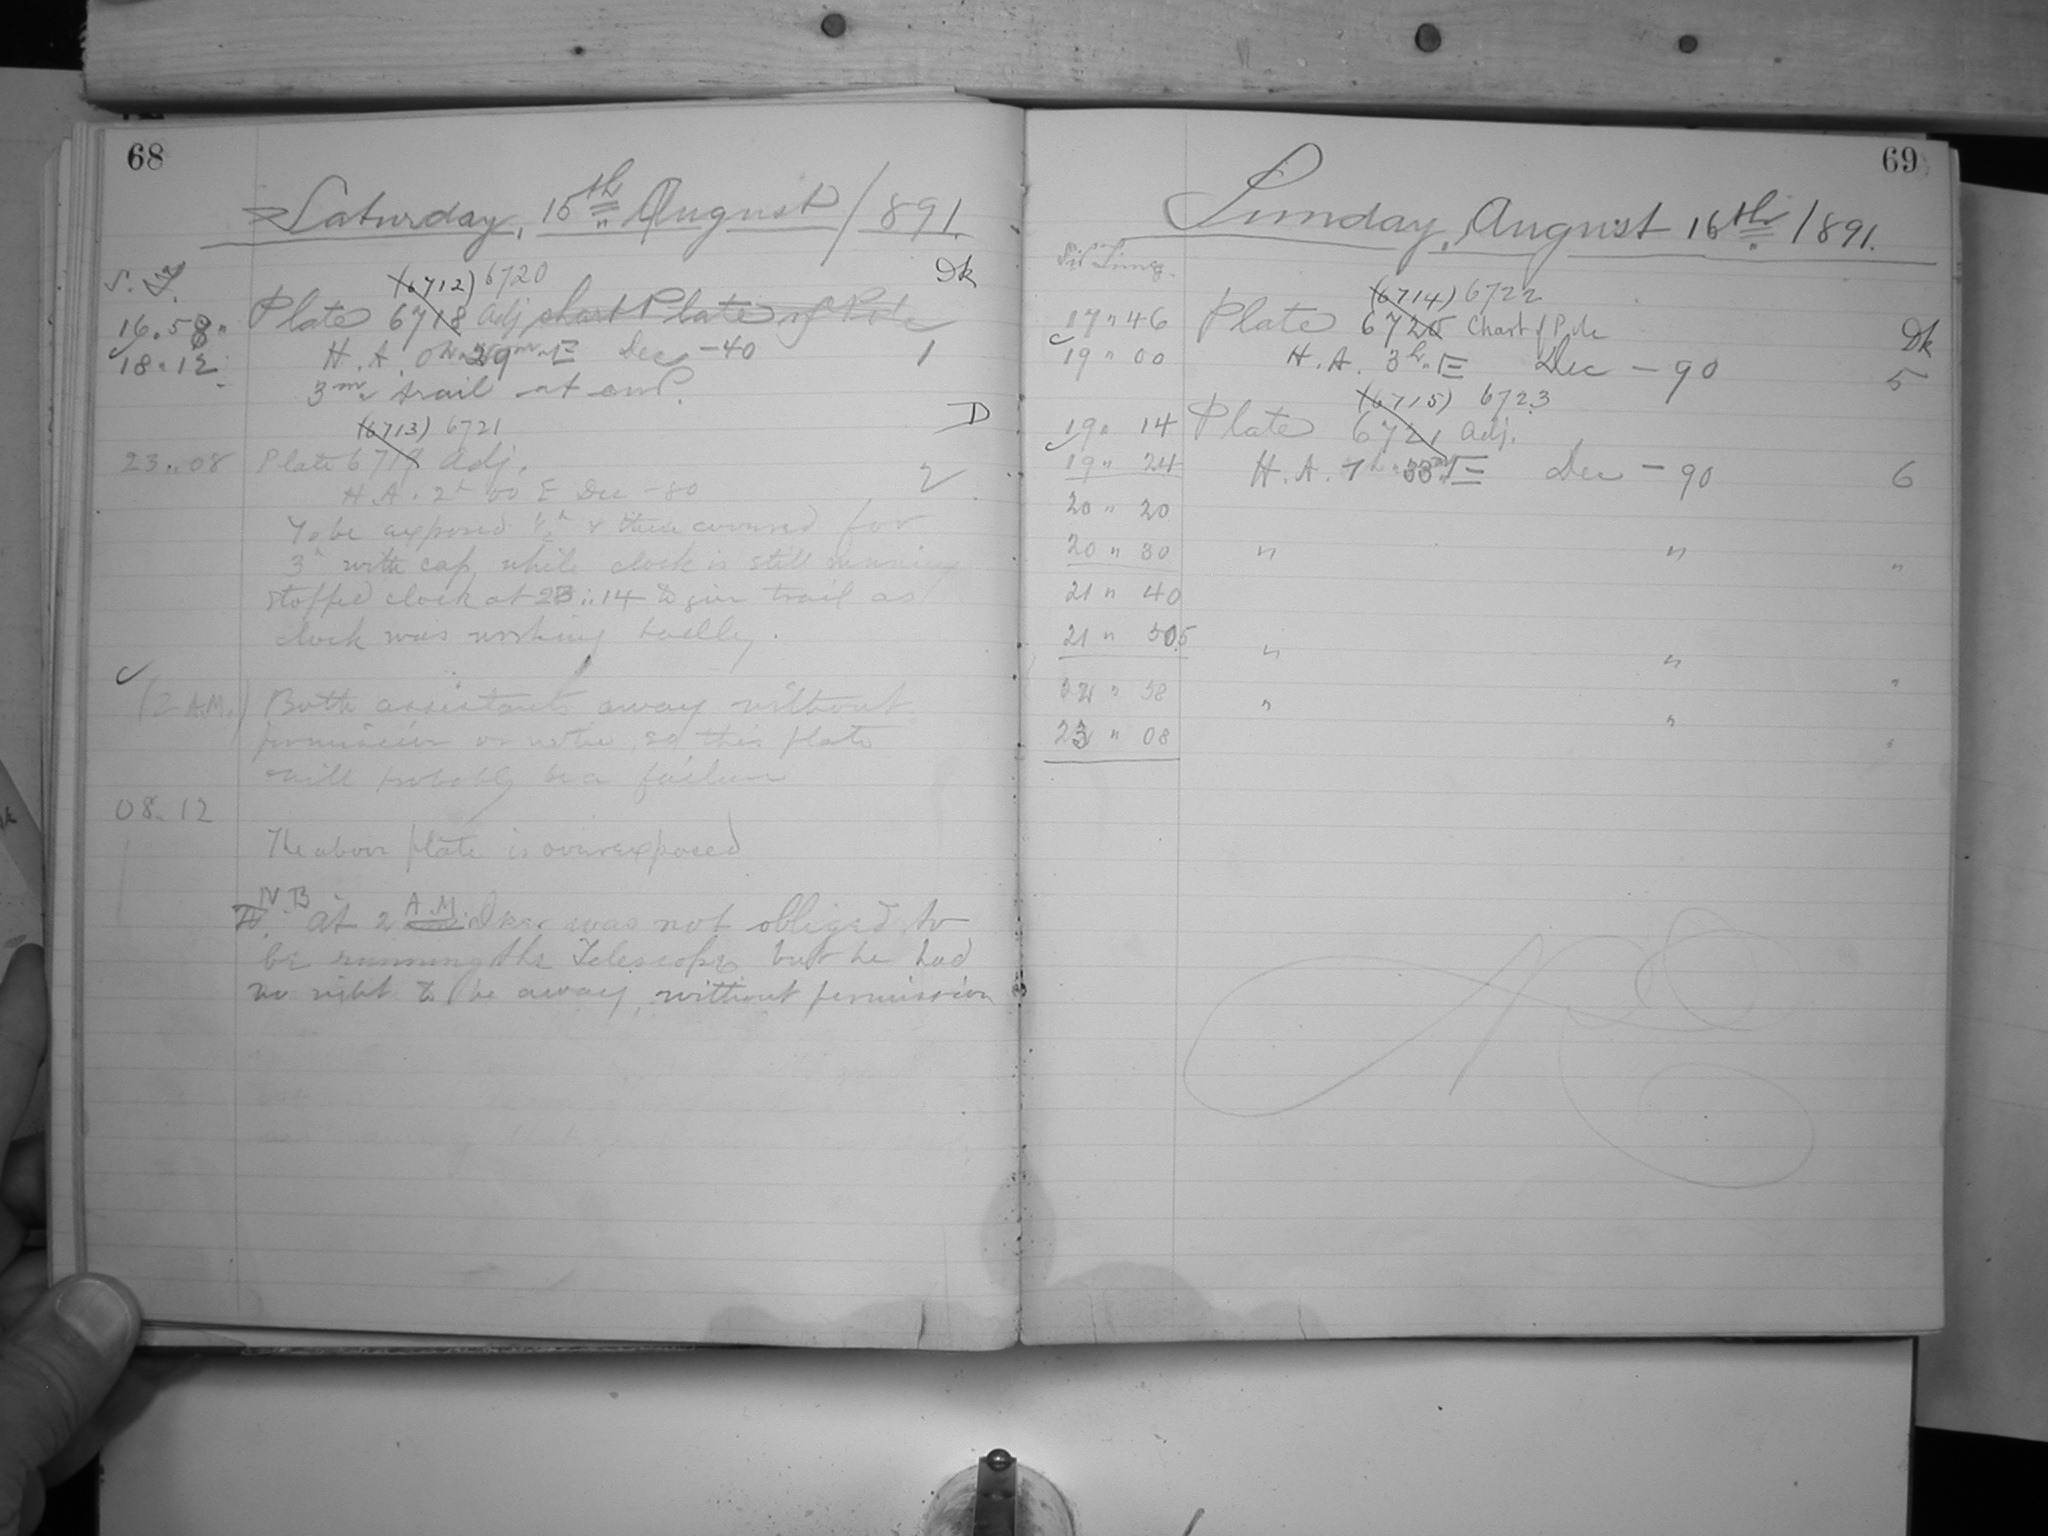 68
Saturday, 15th August 1891.
S. T.
(6712) 6720
Dk
16.58 Plate 6718 Adj chart Plate of Pole
18.12 H. A. 0h 29m E Dec -40 1
3m trail at end.
(6713) 6721
D
23..08 Plate 6719 Adj.
2
H A. 2h 00 E Dec -80
To be exposed & then covered for
3h with cap while clock is still running
stopped clock at 23..14 to give trail as
clock was working badly.
(2 A.M.) Both assistants away without
permission or notice, so this plate
will probably be a failure
08.12
The above plate is overexposed
N.B
at 2 A.M. was not obliged to
be running the Telescope but he had
no right to be away, without permission
69
Sunday, August 16th 1891.
Sid Time.
(6714) 6722
17 " 46 Plate 6720 Chart of Pole
Dk
19 " 00 H. A. 3h. E Dec - 90
5
(6715) 6723
19 " 14 Plate 6721 Adj.
19 " 24 H. A. 1h 33m E Dec - 90 6
20 " 20
20 " 30 " " "
21 " 40
21 " 50.5 " " "
22 " 58 " " "
23 " 08